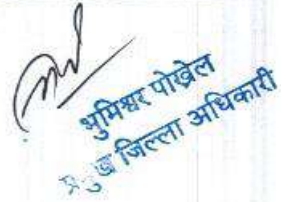 भुमिश्वर पोख्रेल
प्रमुख जिल्ला अधिकारी